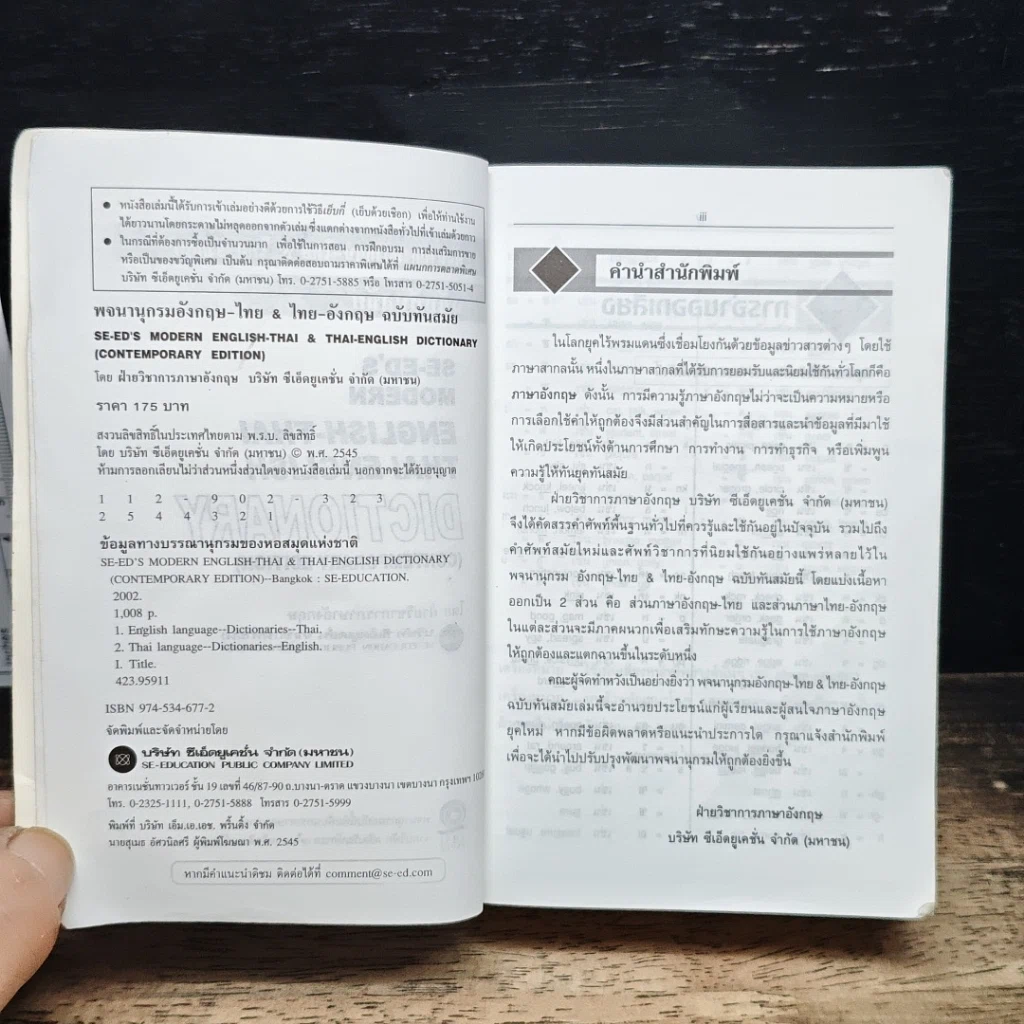 ● หนังสือเล่มนี้ได้รับการเข้าเล่มอย่างดีด้วยการใช้วิธีเย็บกี่ (เย็บด้วยเชือก) เพื่อให้ท่านใช้งาน
ได้ยาวนานโดยกระดาษไม่หลุดออกจากตัวเล่ม ซึ่งแตกต่างจากหนังสือทั่วไปที่เข้าเล่มด้วยกาว
● ในกรณีที่ต้องการซื้อเป็นจำนวนมาก เพื่อใช้ในการสอน การฝึกอบรม การส่งเสริมการขาย
หรือเป็นของขวัญพิเศษ เป็นต้น กรุณาติดต่อสอบถามราคาพิเศษได้ที่ แผนกการตลาดพิเศษ
บริษัท ซีเอ็ดยูเคชั่น จำกัด (มหาชน) โทร. 0-2751-5885 หรือ โทรสาร 0-2751-5051-4
พจนานุกรมอังกฤษ-ไทย & ไทย-อังกฤษ ฉบับทันสมัย
SE-ED'S MODERN ENGLISH-THAI & THAI-ENGLISH DICTIONARY
(CONTEMPORARY EDITION)
โดย ฝ่ายวิชาการภาษาอังกฤษ บริษัท ซีเอ็ดยูเคชั่น จำกัด (มหาชน)
ราคา 175 บาท
สงวนลิขสิทธิ์ในประเทศไทยตาม พ.ร.บ. ลิขสิทธิ์
โดย บริษัท ซีเอ็ดยูเคชั่น จำกัด (มหาชน) © พ.ศ. 2545
ห้ามการลอกเลียนไม่ว่าส่วนหนึ่งส่วนใดของหนังสือเล่มนี้ นอกจากจะได้รับอนุญาต
1 1 2 - 9 0 2 - 3 2 3
2 5 4 4 3 2 1
ข้อมูลทางบรรณานุกรมของหอสมุดแห่งชาติ
SE-ED'S MODERN ENGLISH-THAI & THAI-ENGLISH DICTIONARY
(CONTEMPORARY EDITION)--Bangkok : SE-EDUCATION.
2002.
1,008 p.
1. English language--Dictionaries--Thai.
2. Thai language--Dictionaries--English.
I. Title.
423.95911
ISBN 974-534-677-2
จัดพิมพ์และจัดจำหน่ายโดย
บริษัท ซีเอ็ดยูเคชั่น จำกัด (มหาชน)
SE-EDUCATION PUBLIC COMPANY LIMITED
อาคารเนชั่นทาวเวอร์ ชั้น 19 เลขที่ 46/87-90 ถ.บางนา-ตราด แขวงบางนา เขตบางนา กรุงเทพฯ
โทร. 0-2325-1111, 0-2751-5888 โทรสาร 0-2751-5999
พิมพ์ที่ บริษัท เอ็ม.เอ.เอช. พริ้นติ้ง จำกัด
นายสุเมธ อัศวนิลศรี ผู้พิมพ์โฆษณา พ.ศ. 2545
หากมีคำแนะนำติชม ติดต่อได้ที่ comment@se-ed.com
iii
คำนำสำนักพิมพ์
ในโลกยุคไร้พรมแดนซึ่งเชื่อมโยงกันด้วยข้อมูลข่าวสารต่างๆ โดยใช้
ภาษาสากลนั้น หนึ่งในภาษาสากลที่ได้รับการยอมรับและนิยมใช้กันทั่วโลกก็คือ
ภาษาอังกฤษ ดังนั้น การมีความรู้ภาษาอังกฤษไม่ว่าจะเป็นความหมายหรือ
การเลือกใช้คำให้ถูกต้องจึงมีส่วนสำคัญในการสื่อสารและนำข้อมูลที่มีมาใช้
ให้เกิดประโยชน์ทั้งด้านการศึกษา การทำงาน การทำธุรกิจ หรือเพิ่มพูน
ความรู้ให้ทันยุคทันสมัย
ฝ่ายวิชาการภาษาอังกฤษ บริษัท ซีเอ็ดยูเคชั่น จำกัด (มหาชน)
จึงได้คัดสรรคำศัพท์พื้นฐานทั่วไปที่ควรรู้และใช้กันอยู่ในปัจจุบัน รวมไปถึง
คำศัพท์สมัยใหม่และศัพท์วิชาการที่นิยมใช้กันอย่างแพร่หลายไว้ใน
พจนานุกรม อังกฤษ-ไทย & ไทย-อังกฤษ ฉบับทันสมัยนี้ โดยแบ่งเนื้อหา
ออกเป็น 2 ส่วน คือ ส่วนภาษาอังกฤษ-ไทย และส่วนภาษาไทย-อังกฤษ
ในแต่ละส่วนจะมีภาคผนวกเพื่อเสริมทักษะความรู้ในการใช้ภาษาอังกฤษ
ให้ถูกต้องและแตกฉานขึ้นในระดับหนึ่ง
คณะผู้จัดทำหวังเป็นอย่างยิ่งว่า พจนานุกรมอังกฤษ-ไทย & ไทย-อังกฤษ
ฉบับทันสมัยเล่มนี้จะอำนวยประโยชน์แก่ผู้เรียนและผู้สนใจภาษาอังกฤษ
ยุคใหม่ หากมีข้อผิดพลาดหรือแนะนำประการใด กรุณาแจ้งสำนักพิมพ์
เพื่อจะได้นำไปปรับปรุงพัฒนาพจนานุกรมให้ถูกต้องยิ่งขึ้น
ฝ่ายวิชาการภาษาอังกฤษ
บริษัท ซีเอ็ดยูเคชั่น จำกัด (มหาชน)